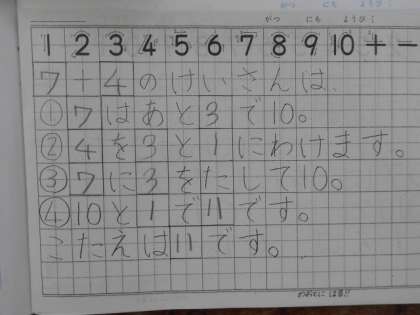 がつ にち ようび
1 2 3 4 5 6 7 8 9 10 + −
7+4のけいさんは、
①7はあと3で10。
②4を3と1にわけます。
③7に3をたして10。
④10と1で11です。
こたえは11です。